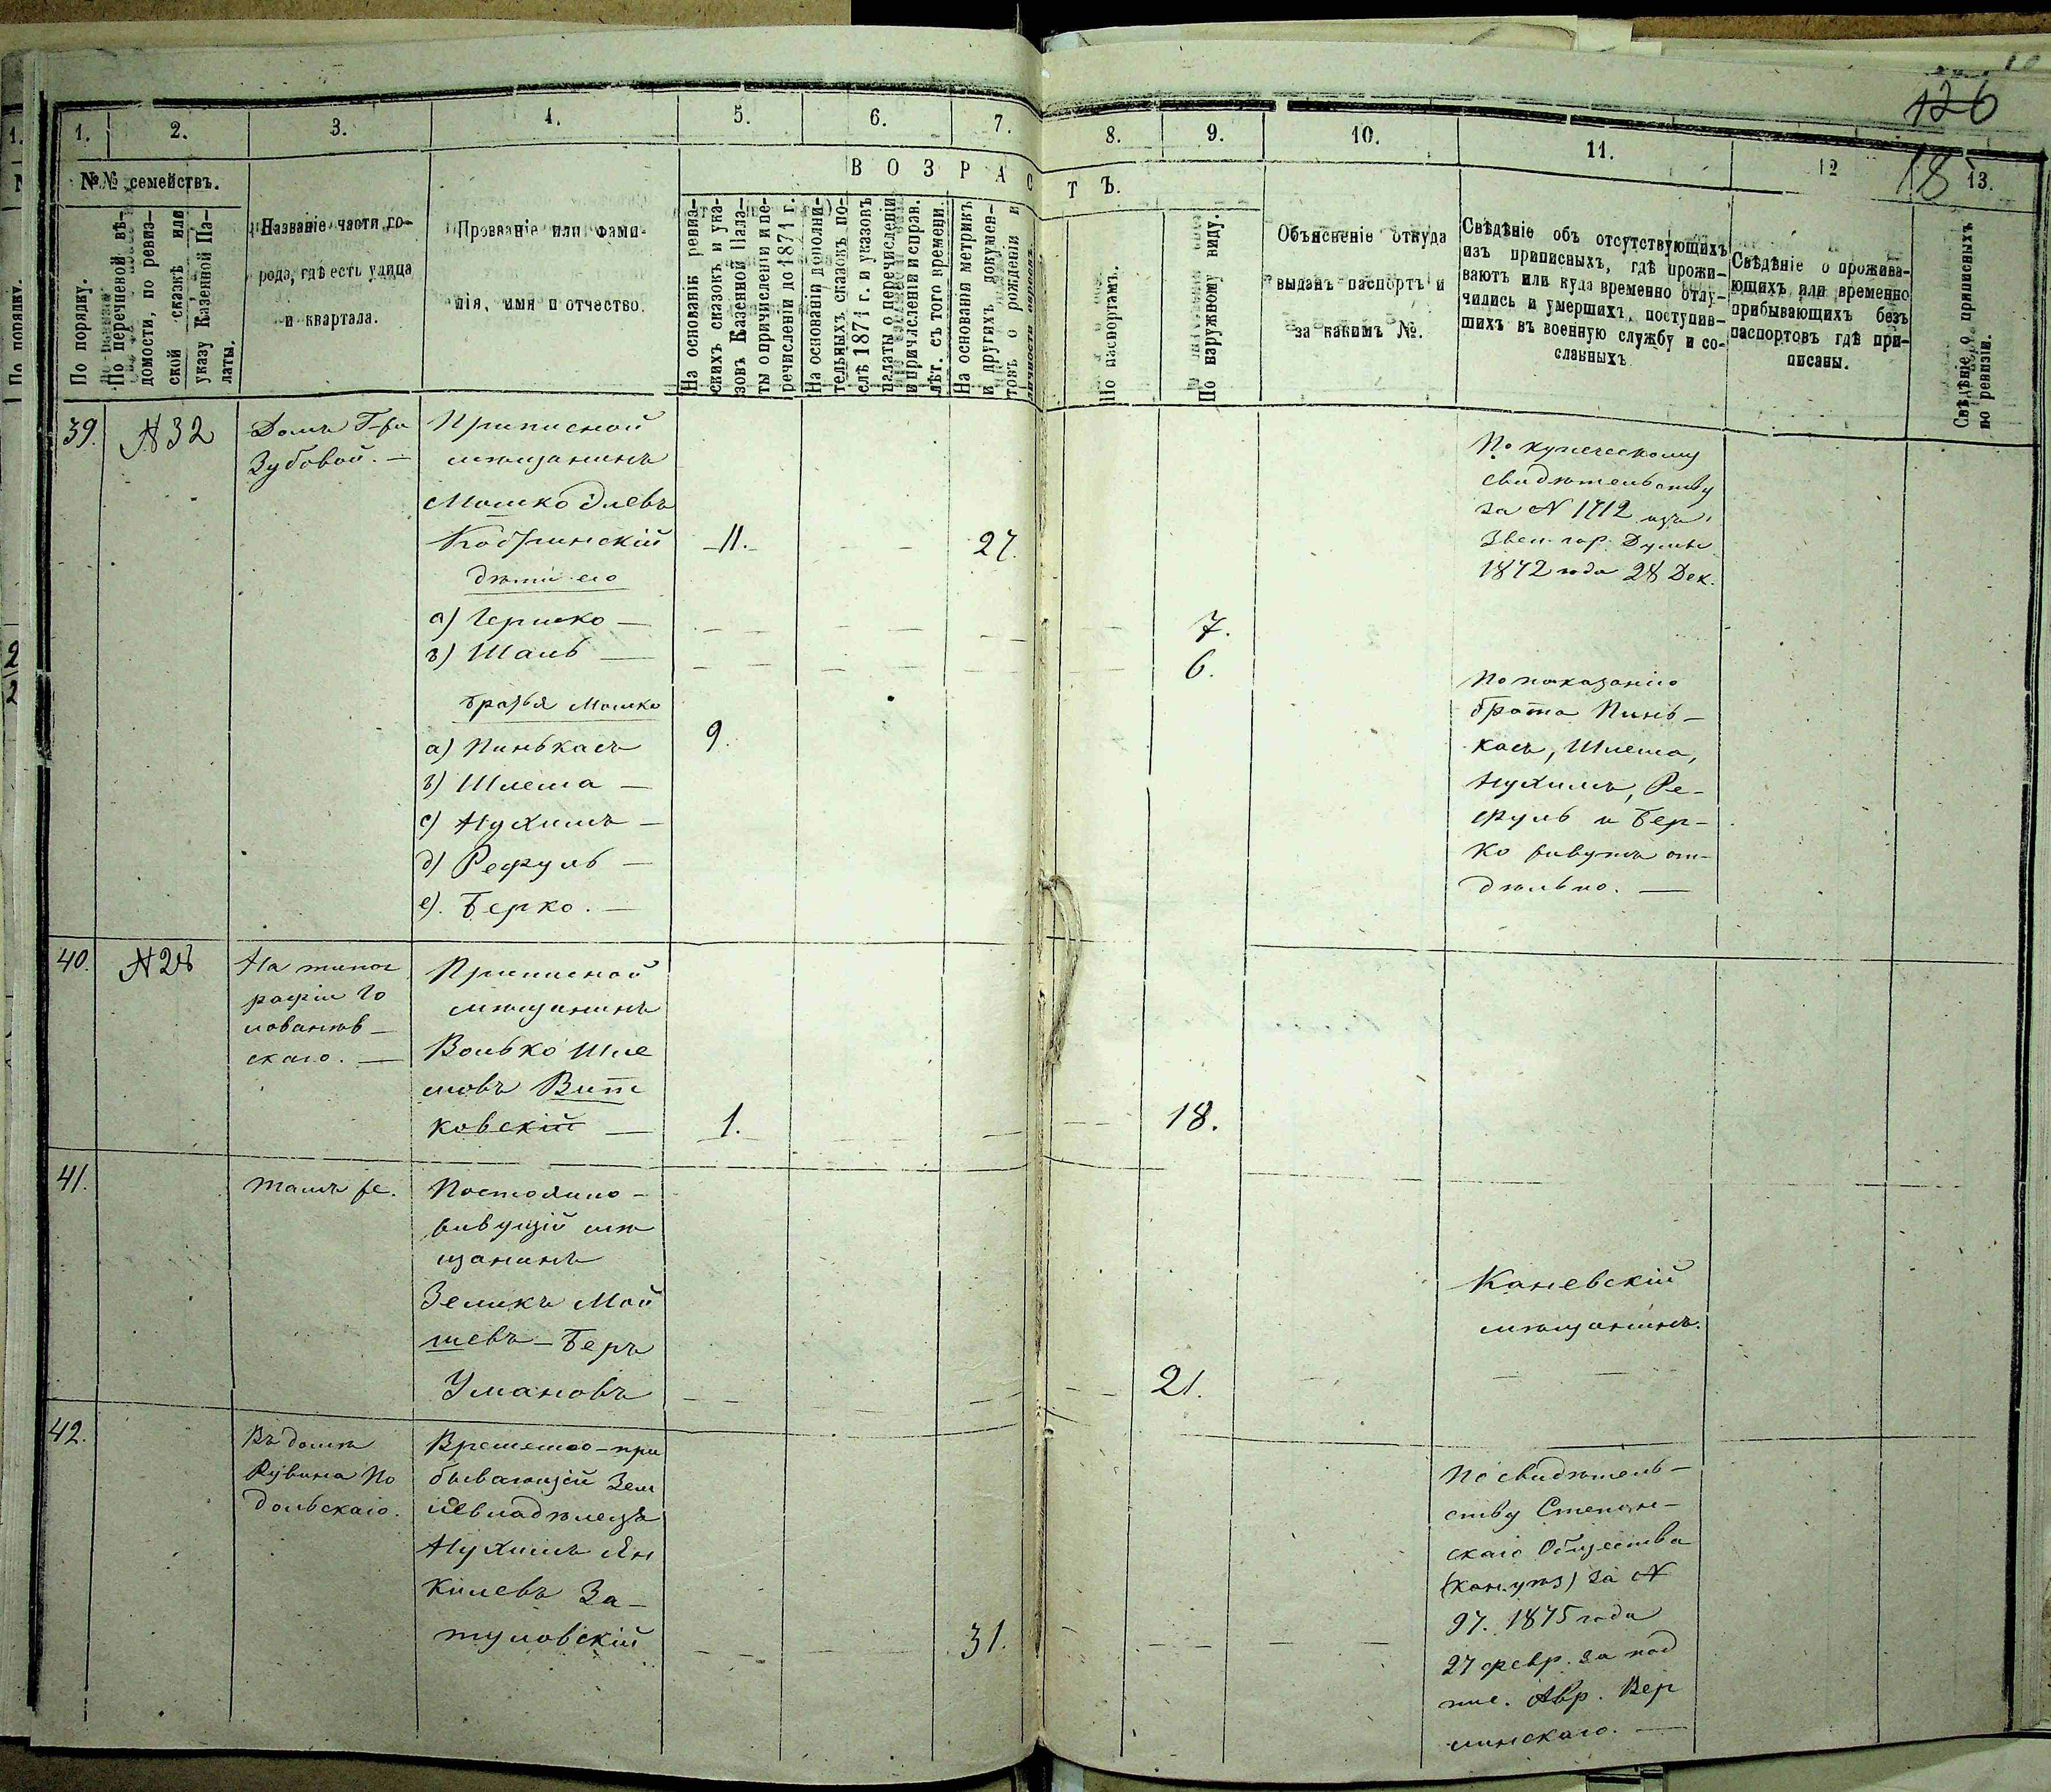 126
18
1. 2. 3. 4. 5. 6. 7. 8. 9. 10. 11. 12 13.
№№ семействъ.
По порядку.
По перечневой вѣ-
домости, по ревиз-
ской сказкѣ или
указу Казенной Па-
латы.
Названіе части го-
рода, гдѣ есть улица
и квартала.
Прозваніе или фами-
лія, имя и отчество.
ВОЗРАСТЪ.
На основаніи ревиз-
скихъ сказокъ и ука-
зовъ Казенной Пала-
ты о причисленіи и пе-
речисленіи до 1871 г.
На основаніи дополни-
тельныхъ сказокъ по-
слѣ 1871 г. и указовъ
палаты о перечисленіи
и причисленіи и справ.
лѣт. съ того времени.
На основаніи метрикъ
и другихъ докумен-
товъ о рожденіи и
По паспортамъ.
По наружному виду.
Объясненіе откуда
выданъ паспортъ и
за какимъ №.
Свѣдѣніе объ отсутствующихъ
изъ приписныхъ, гдѣ прожи-
ваютъ или куда временно отлу-
чились и умершихъ, поступив-
шихъ въ военную службу и со-
сланныхъ
Свѣдѣніе о прожива-
ющихъ или временно
прибывающихъ безъ
паспортовъ гдѣ при-
писаны.
Свѣдѣніе о приписныхъ
по ревизіи.
39.
N 32
Домъ Г-жи
Зубовой. —
Приписной
мѣщанинъ
Мошко Элевъ
Кобринскій
дѣти его
а) Гершко —
в) Шаль —
братья Мошко
а) Пинькасъ
в) Шлема —
с) Нухимъ —
d) Рефуль —
е). Берко. —
11.
27.
7.
6.
9.
По купеческому
свидѣтельству
за N 1712 изъ
Звен. гор. Думы
1872 года 28 Дек.
По показанію
брата Пинь-
касъ, Шлема,
Нухимъ, Ре-
фуль и Бер-
ко живутъ от-
дѣльно. —
40.
N 28
На типог
рафіи Го
лованѣв-
скаго. —
Приписной
мѣщанинъ
Волько Шле
мовъ Вит
ковскій —
1.
18.
41.
Тамъ же.
Постоянно-
живущій мѣ
щанинъ
Зеликъ Мой
шевъ-Беръ
Умановъ
21.
Каневскій
мѣщанинъ.
42.
Въ домѣ
Рувина По
дольскаго.
Временно-при
бывающій Зем
левладѣлецъ
Нухимъ Ян
килевъ За-
туловскій
31.
По свидѣтель-
ству Степан-
скаго Общества
за N
97. 1875 года
27 февр. за под
пис. Авр. Вер
линскаго. —